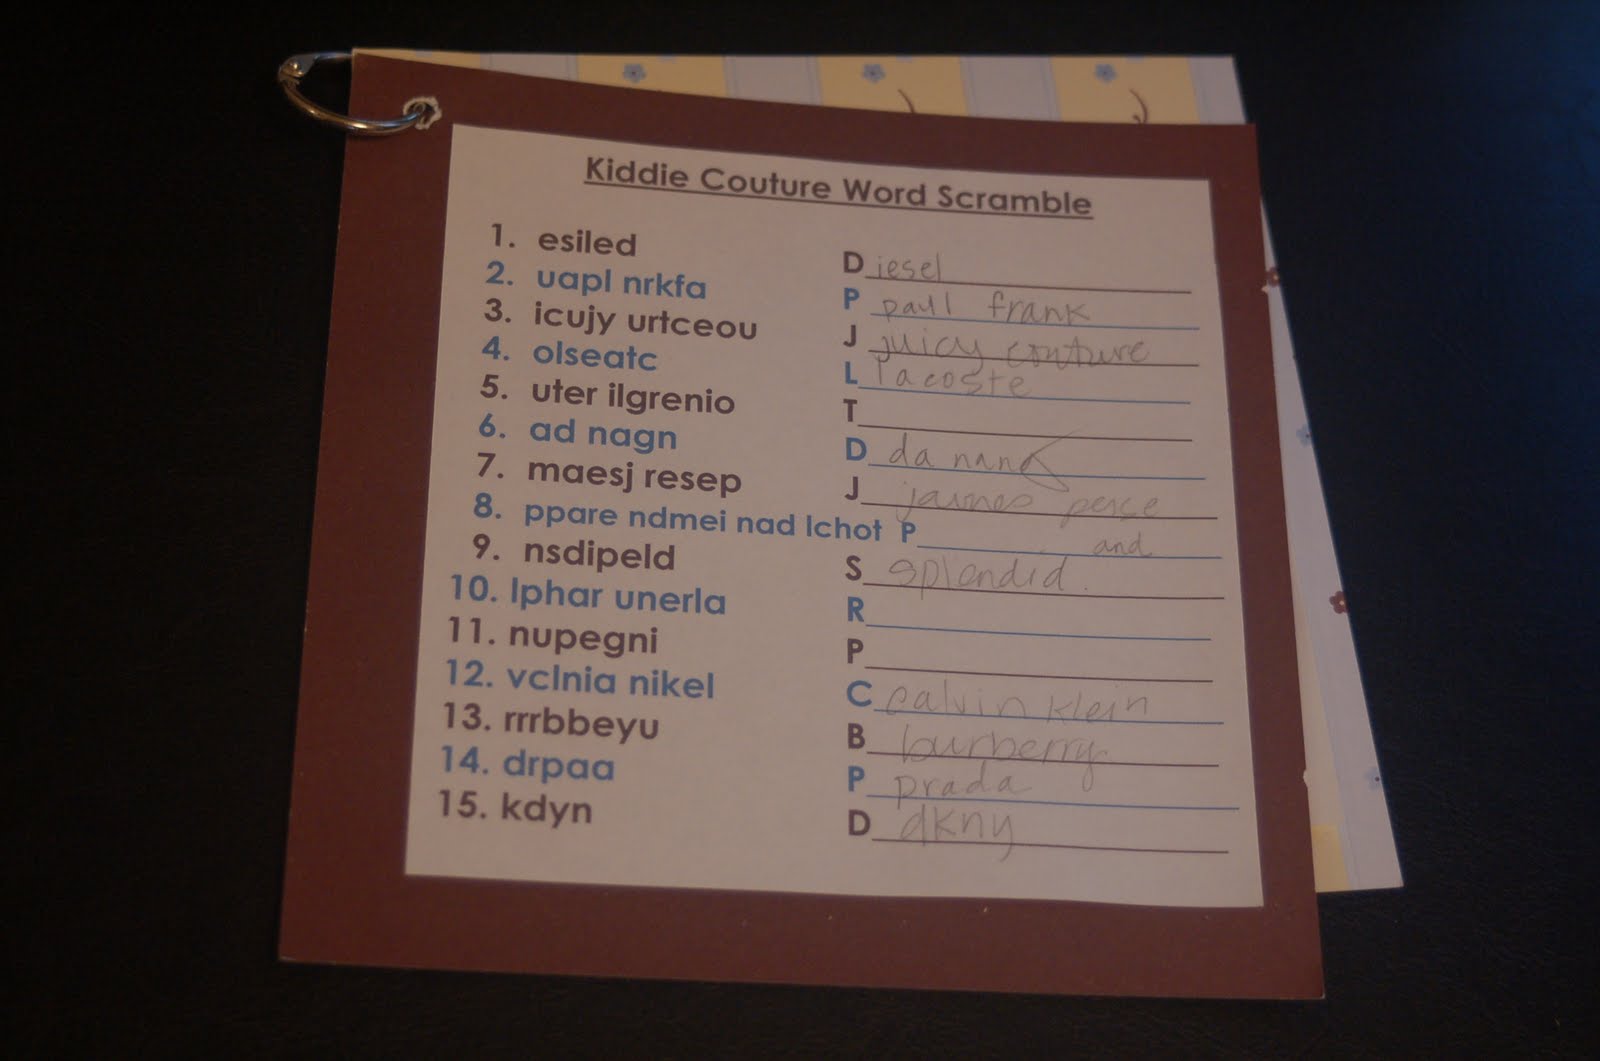 Kiddie Couture Word Scramble
1. esiled D iesel
2. uapl nrkfa P paul frank
3. icujy urtceou J juicy couture
4. olseatc L lacoste
5. uter ilgrenio T
6. ad nagn D da nang
7. maesj resep J james perse
8. ppare ndmei nad lchot P and
9. nsdipeld S splendid
10. lphar unerla R
11. nupegni P
12. vclnia nikel C calvin klein
13. rrrbbeyu B burberry
14. drpaa P prada
15. kdyn D dkny